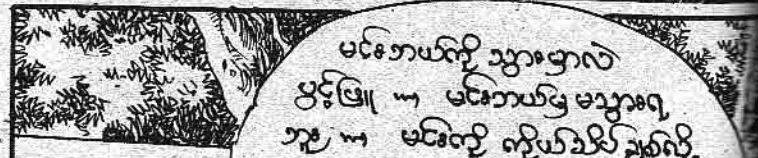 မင်းဘယ်ကို သွားမှာလဲ
ပွင့်ဖြူ ... မင်းဘယ်မှ မသွားရ
ဘူး ... မင်းကို ကိုယ်သိပ်ချစ်လို့